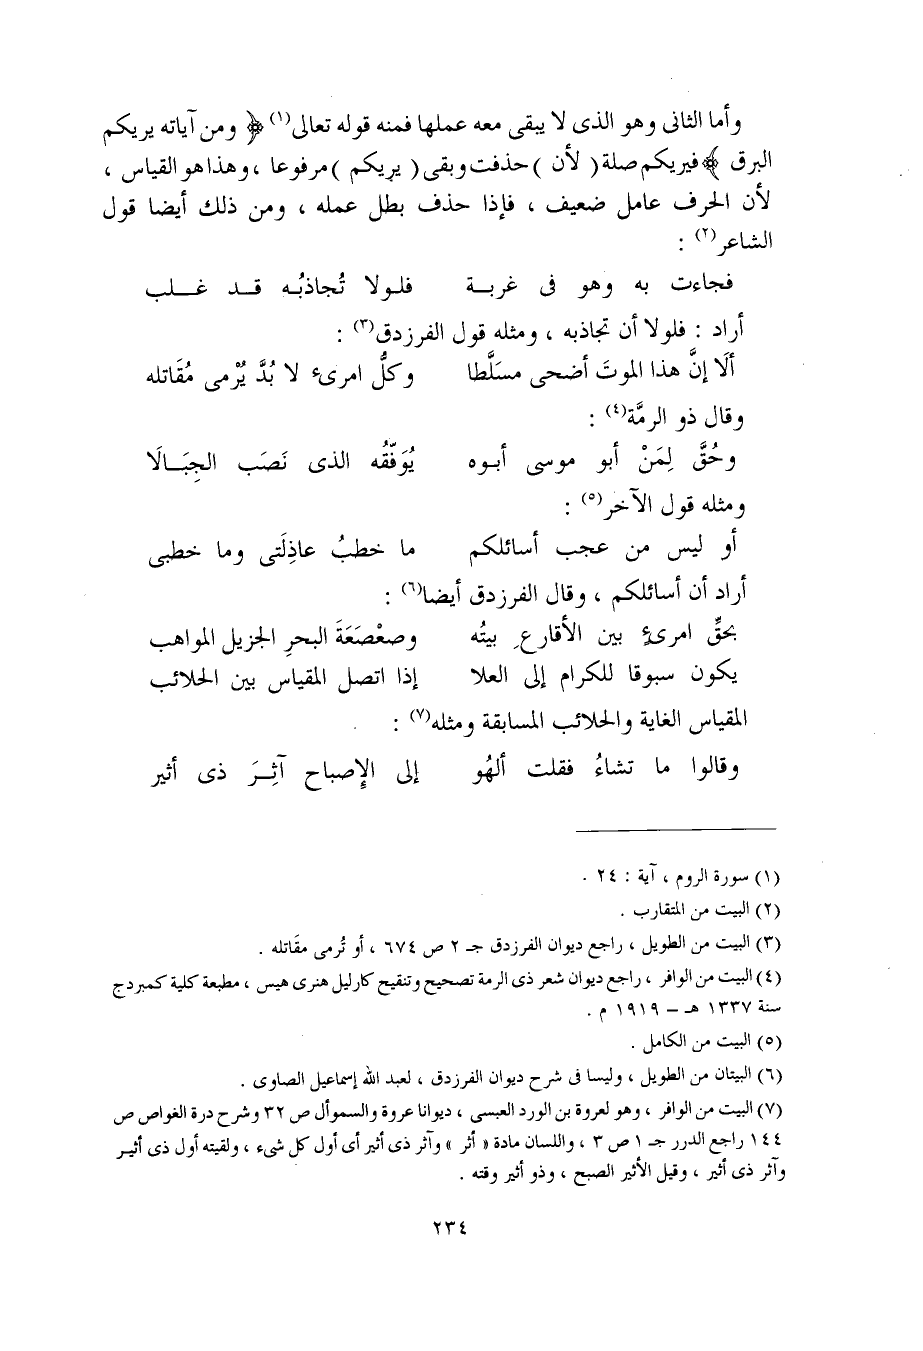 وأما الثانى وهو الذى لا يبقى معه عملها فمنه قوله تعالى(١) ﴿ ومن آياته يريكم
البرق ﴾ فيريكم صلة ( لأن ) حذفت وبقى ( يريكم ) مرفوعا ، وهذا هو القياس ،
لأن الحرف عامل ضعيف ، فإذا حذف بطل عمله ، ومن ذلك أيضا قول
الشاعر(٢) :
فجاءت به وهو فى غربــة فلـولا تُجاذبُـه قـد غـلـب
أراد : فلولا أن تجاذبه ، ومثله قول الفرزدق(٣) :
ألَا إنَّ هذا الموتَ أضحى مسَلَّطا وكلُّ امرىء لا بُدَّ يُرْمى مُقَاتله
وقال ذو الرمَّة(٤) :
وحُقَّ لِمَنْ أبو موسى أبـوه يُوَفّقُه الذى نَصَب الجِبَـالَا
ومثله قول الآخر(٥) :
أو ليس من عجب أسائلكم ما خطبُ عاذِلَتى وما خطبى
أراد أن أسائلكم ، وقال الفرزدق أيضا(٦) :
بحقِّ امرىءٍ بين الأقارعِ بيتُه وصعْصَعَةَ البحرِ الجزيل المواهب
يكون سبوقا للكرام إلى العلا إذا اتصل المقياس بين الحلائب
المقياس الغاية والحلائب المسابقة ومثله(٧) :
وقالوا ما تشاءُ فقلت ألهُو إلى الإصباح آثِـرَ ذى أثير
(١) سورة الروم ، آية : ٢٤ .
(٢) البيت من المتقارب .
(٣) البيت من الطويل ، راجع ديوان الفرزدق جـ ٢ ص ٦٧٤ ، أو تُرمى مقَاتله .
(٤) البيت من الوافر ، راجع ديوان شعر ذى الرمة تصحيح وتنقيح كارليل هنرى هيس ، مطبعة كلية كمبردج
سنة ١٣٣٧ هـ – ١٩١٩ م .
(٥) البيت من الكامل .
(٦) البيتان من الطويل ، وليسا فى شرح ديوان الفرزدق ، لعبد الله إسماعيل الصاوى .
(٧) البيت من الوافر ، وهو لعروة بن الورد العبسى ، ديوانا عروة والسموأل ص ٣٢ وشرح درة الغواص ص
١٤٤ راجع الدرر جـ ١ ص ٣ ، واللسان مادة « أثر » وآثر ذى أثير أى أول كل شىء ، ولقيته أول ذى أثيـر
وآثر ذى أثير ، وقيل الأثير الصبح ، وذو أثير وقته .
٢٣٤